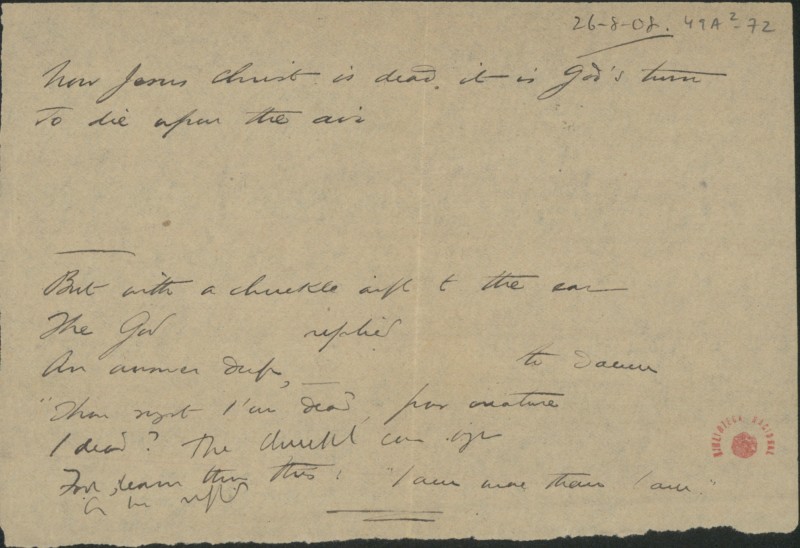 26-8-08. 49A²-72
Now Jesus Christ is dead, it is God's turn
To die upon the air
But with a chuckle to the ear
The God replied
An answer deep, to
"Thou sayst I'm dead, poor creature
I dead? The chuckle
Fool, learn thou this: "I am more than I am."
BIBLIOTECA NACIONAL